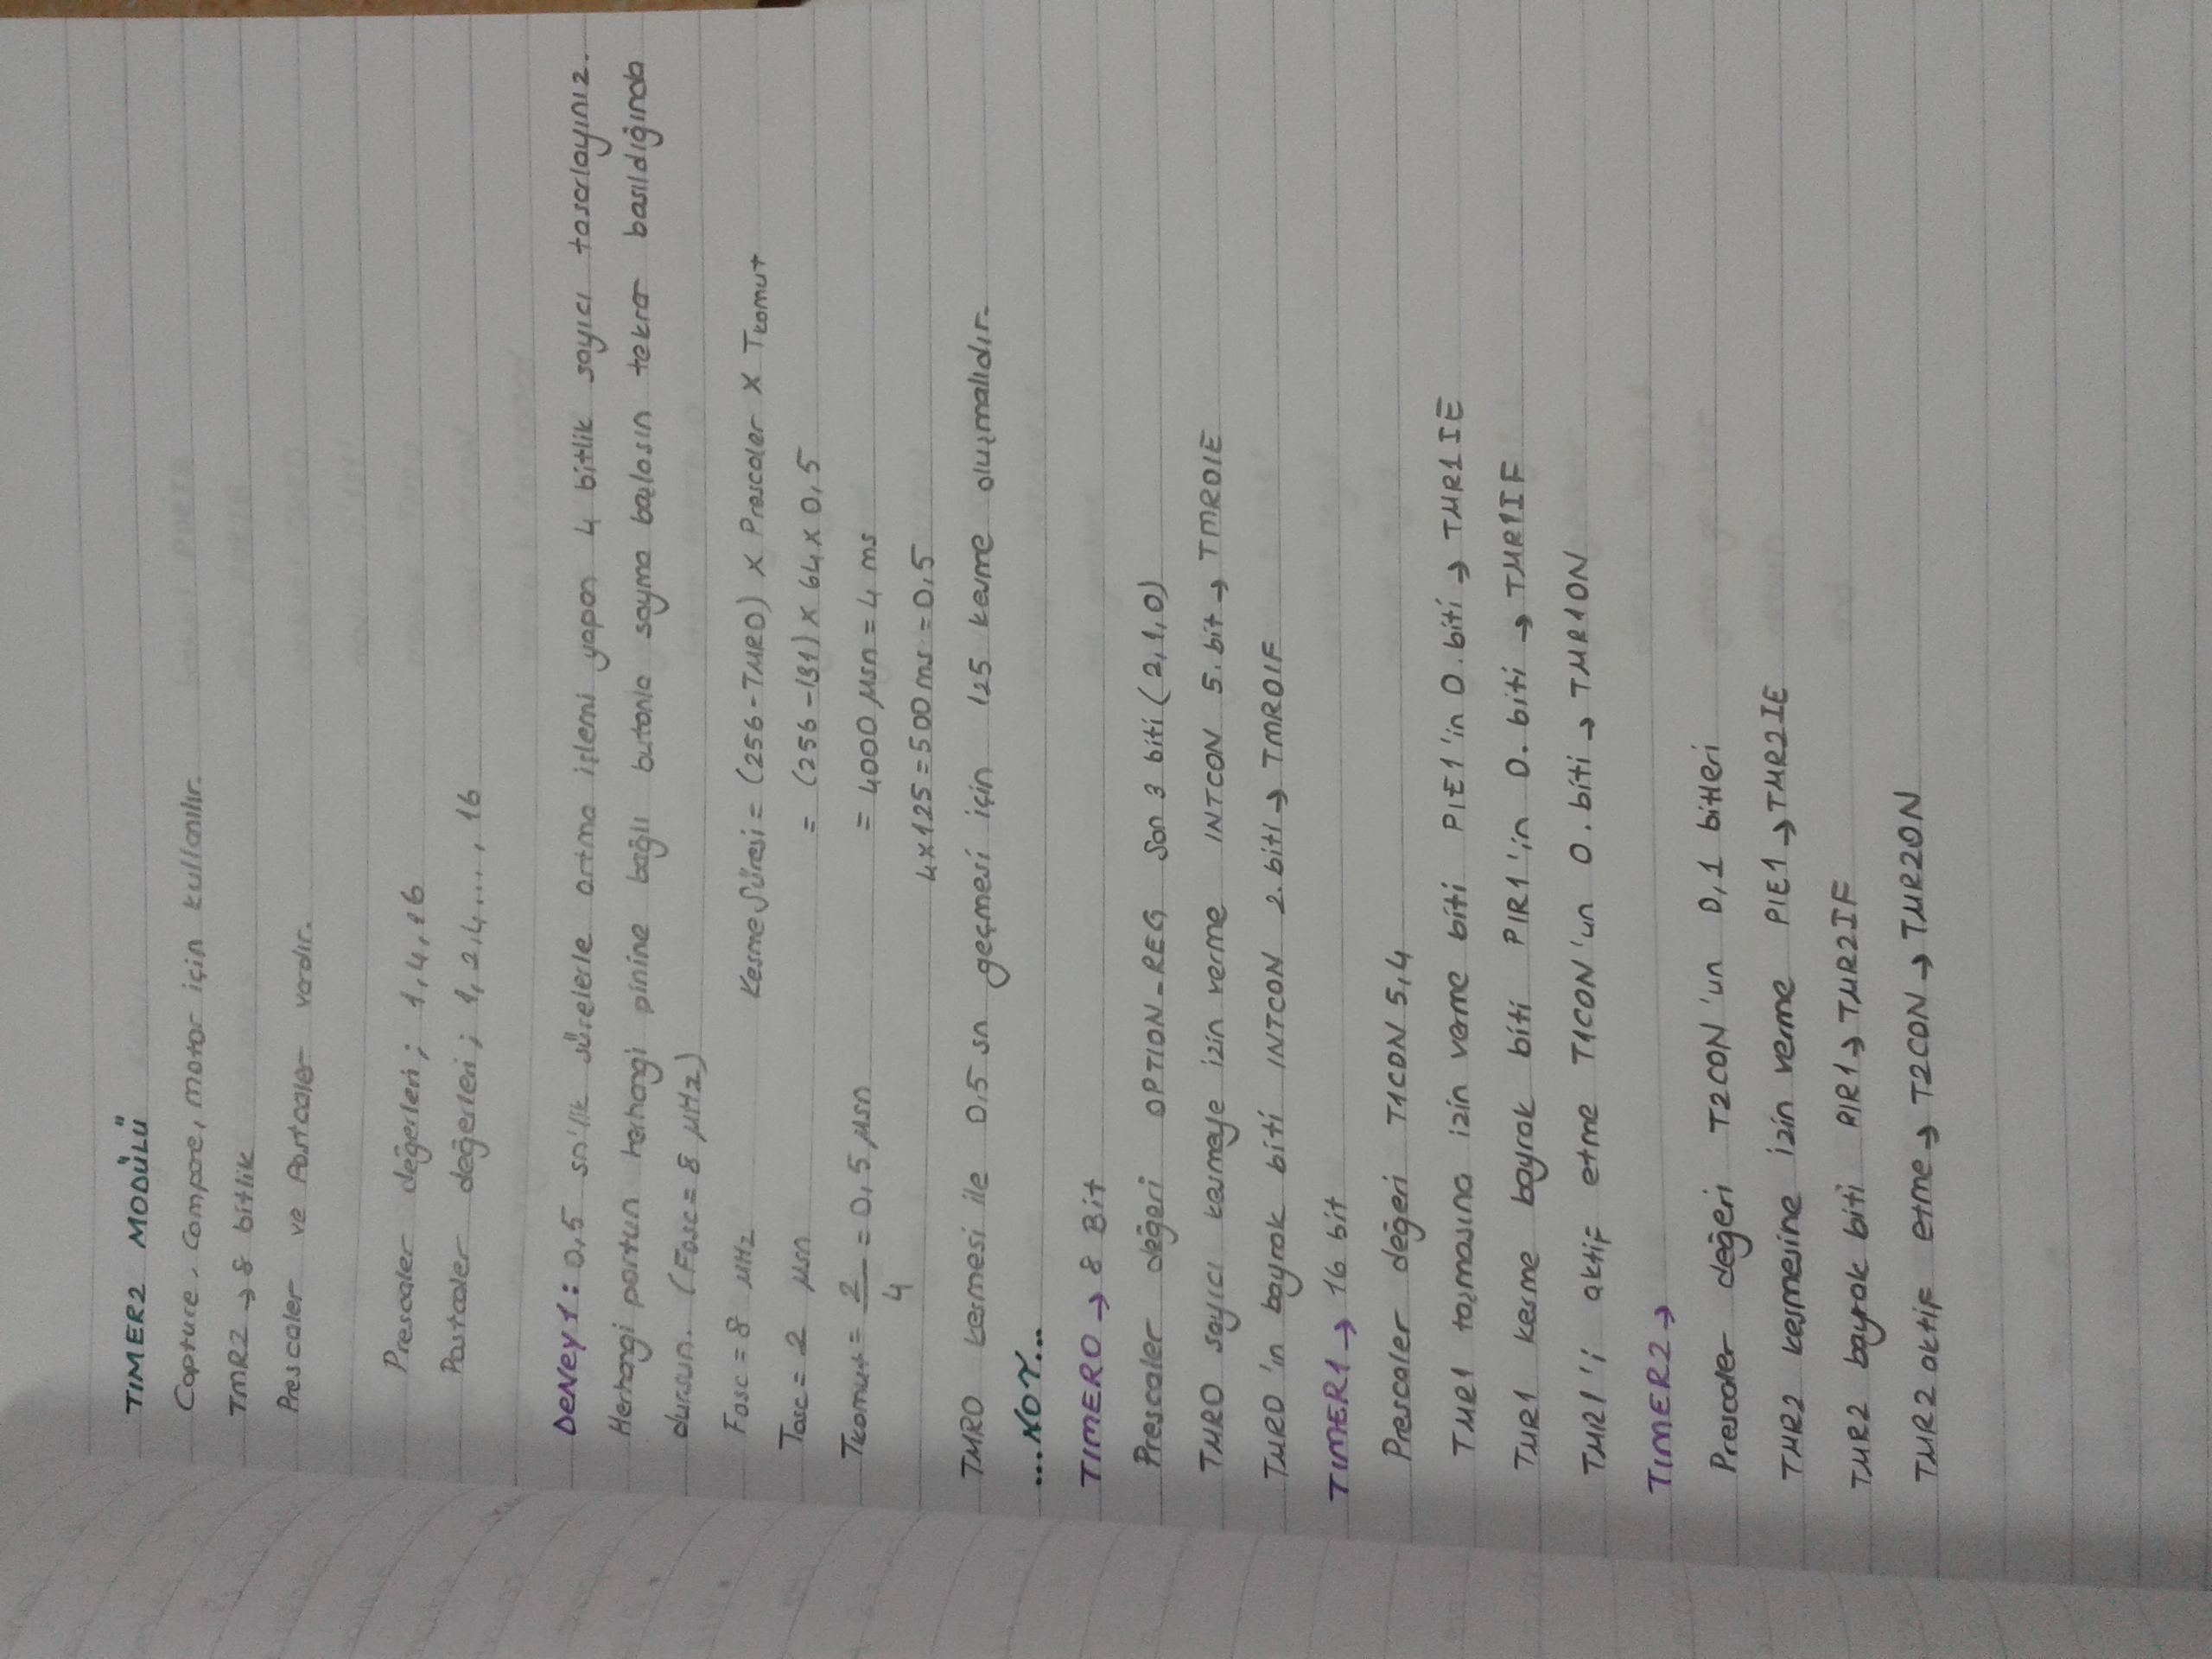 TIMER2 MODÜLÜ
Capture, Compare, motor için kullanılır.
TMR2 → 8 bitlik
Prescaler ve Postcaler vardır.
Prescaler değerleri; 1,4,16
Postcaler değerleri; 1,2,4...,16
DeNey1: 0,5 sn'lik sürelerle artma işlemi yapan 4 bitlik sayıcı tasarlayınız.
Herhangi portun herhangi pinine bağlı butonla sayma başlasın tekrar basıldığında
dursun. (Fosc = 8 μHz)
Fosc = 8 μHz Kesme Süresi = (256-TMR0) x Prescaler x Tkomut
Tosc = 2 μsn = (256-131) x 64 x 0,5
Tkomut = 2/4 = 0,5 μsn = 4000 μsn = 4 ms
4x125 = 500 ms = 0,5
TMR0 kesmesi ile 0,5 sn geçmesi için 125 kesme oluşmalıdır.
...NOT...
TIMER0 → 8 Bit
Prescaler değeri OPTION_REG Son 3 biti (2,1,0)
TMR0 sayıcı kesmeye izin verme INTCON 5. bit → TMR0IE
TMR0'ın bayrak biti INTCON 2. biti → TMR0IF
TIMER1 → 16 bit
Prescaler değeri T1CON 5,4
TMR1 taşmasına izin verme biti PIE1'in 0. biti → TMR1IE
TMR1 kesme bayrak biti PIR1'in 0. biti → TMR1IF
TMR1'i aktif etme T1CON'un 0. biti → TMR1ON
TIMER2 →
Prescaler değeri T2CON'un 0,1 bitleri
TMR2 kesmesine izin verme PIE1 → TMR2IE
TMR2 bayrak biti PIR1 → TMR2IF
TMR2 aktif etme → T2CON → TMR2ON